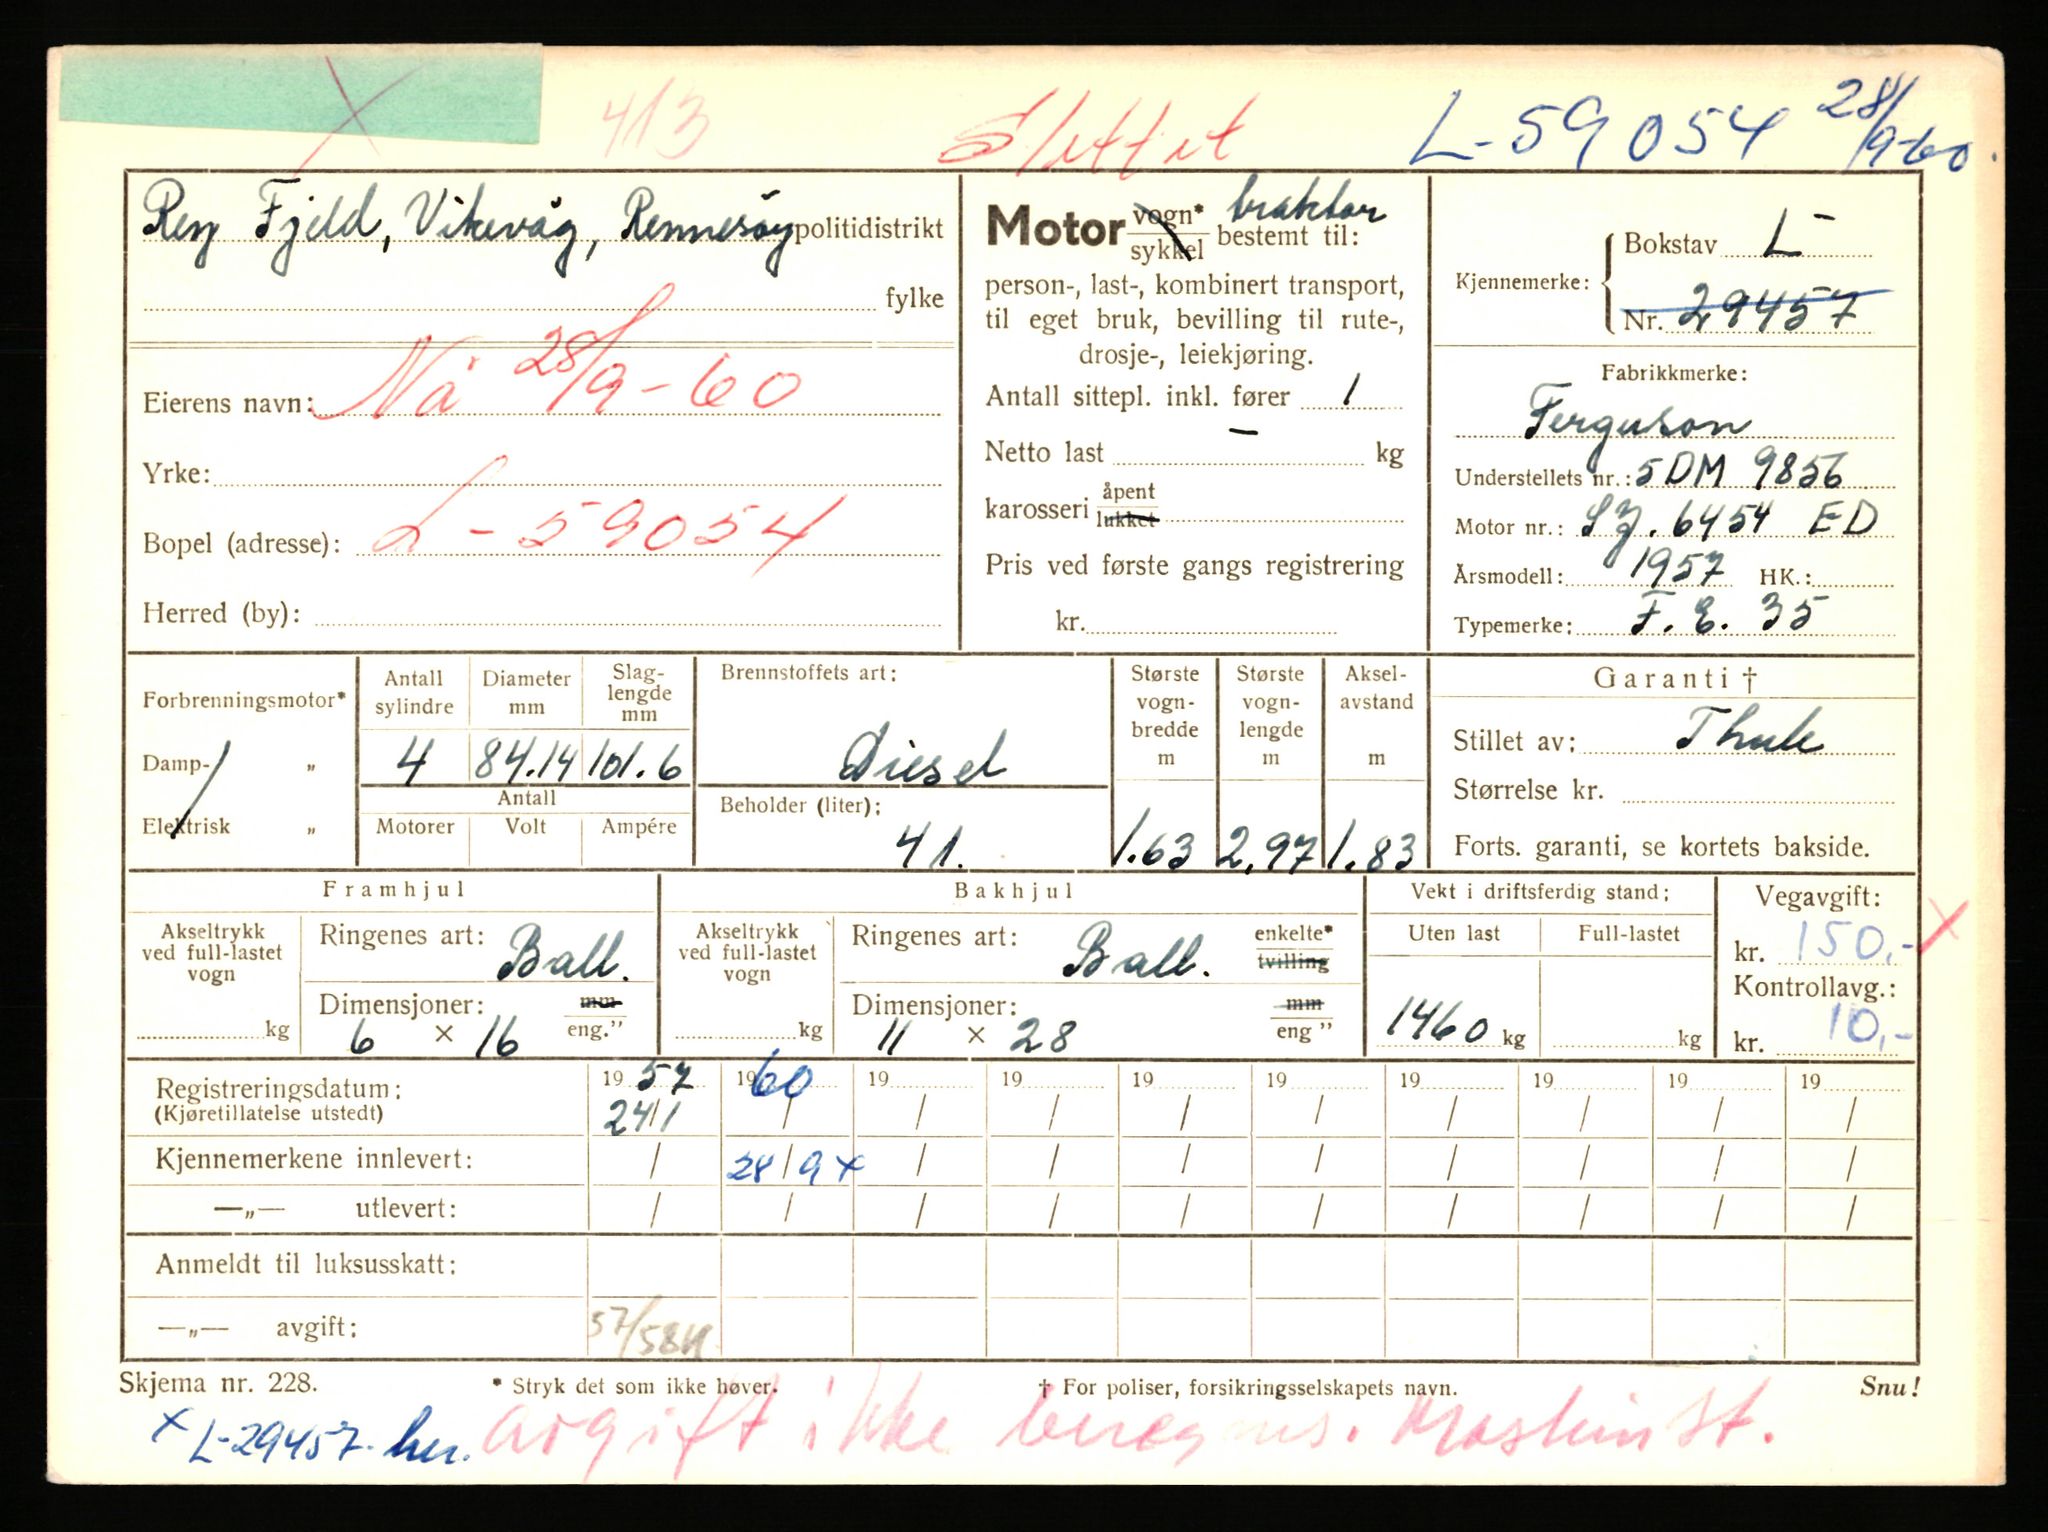 413 Slettet L-59054 28/9-60.
Fjeld, Vikevåg, Rennesöy politidistrikt
fylke
Eierens navn: Nå 28/9-60
Yrke:
Bopel (adresse): L-59054
Herred (by):
Motor vogn* traktor
sykkel bestemt til:
person-, last-, kombinert transport,
til eget bruk, bevilling til rute-,
drosje-, leiekjøring.
Antall sittepl. inkl. fører 1
Netto last – kg
karosseri åpent
lukket
Pris ved første gangs registrering
kr.
Kjennemerke: Bokstav L
Nr. 29457
Fabrikkmerke:
Ferguson
Understellets nr.: 5DM 9856
Motor nr.: 6454 ED
Årsmodell: 1957 HK.:
Typemerke: F.E. 35
Forbrenningsmotor*
Damp- „
Elektrisk „
Antall sylindre Diameter mm Slaglengde mm
4 84.14 101.6
Antall
Motorer Volt Ampére
Brennstoffets art:
Diesel
Beholder (liter):
41.
Største vogn-bredde m
1.63
Største vogn-lengde m
2,97
Aksel-avstand m
1.83
Garanti †
Stillet av: Thule
Størrelse kr.
Forts. garanti, se kortets bakside.
Framhjul
Akseltrykk ved full-lastet vogn
kg
Ringenes art: Ball.
Dimensjoner: mm
6 × 16 eng.”
Bakhjul
Akseltrykk ved full-lastet vogn
kg
Ringenes art: Ball. enkelte*
tvilling
Dimensjoner: mm
11 × 28 eng ”
Vekt i driftsferdig stand:
Uten last Full-lastet
1460 kg kg
Vegavgift:
kr. 150,- X
Kontrollavg.:
kr. 10,-
Registreringsdatum: 1957 1960 19 19 19 19 19 19 19 19
(Kjøretillatelse utstedt) 24/1 / / / / / / / / /
Kjennemerkene innlevert: / 28/9 x / / / / / / / /
—„— utlevert: / / / / / / / / / /
Anmeldt til luksusskatt:
—„— avgift: 57/58
Skjema nr. 228. * Stryk det som ikke høver. † For poliser, forsikringsselskapets navn. Snu!
x L-29457 her. avgift ikke beregnes. Maskin st.